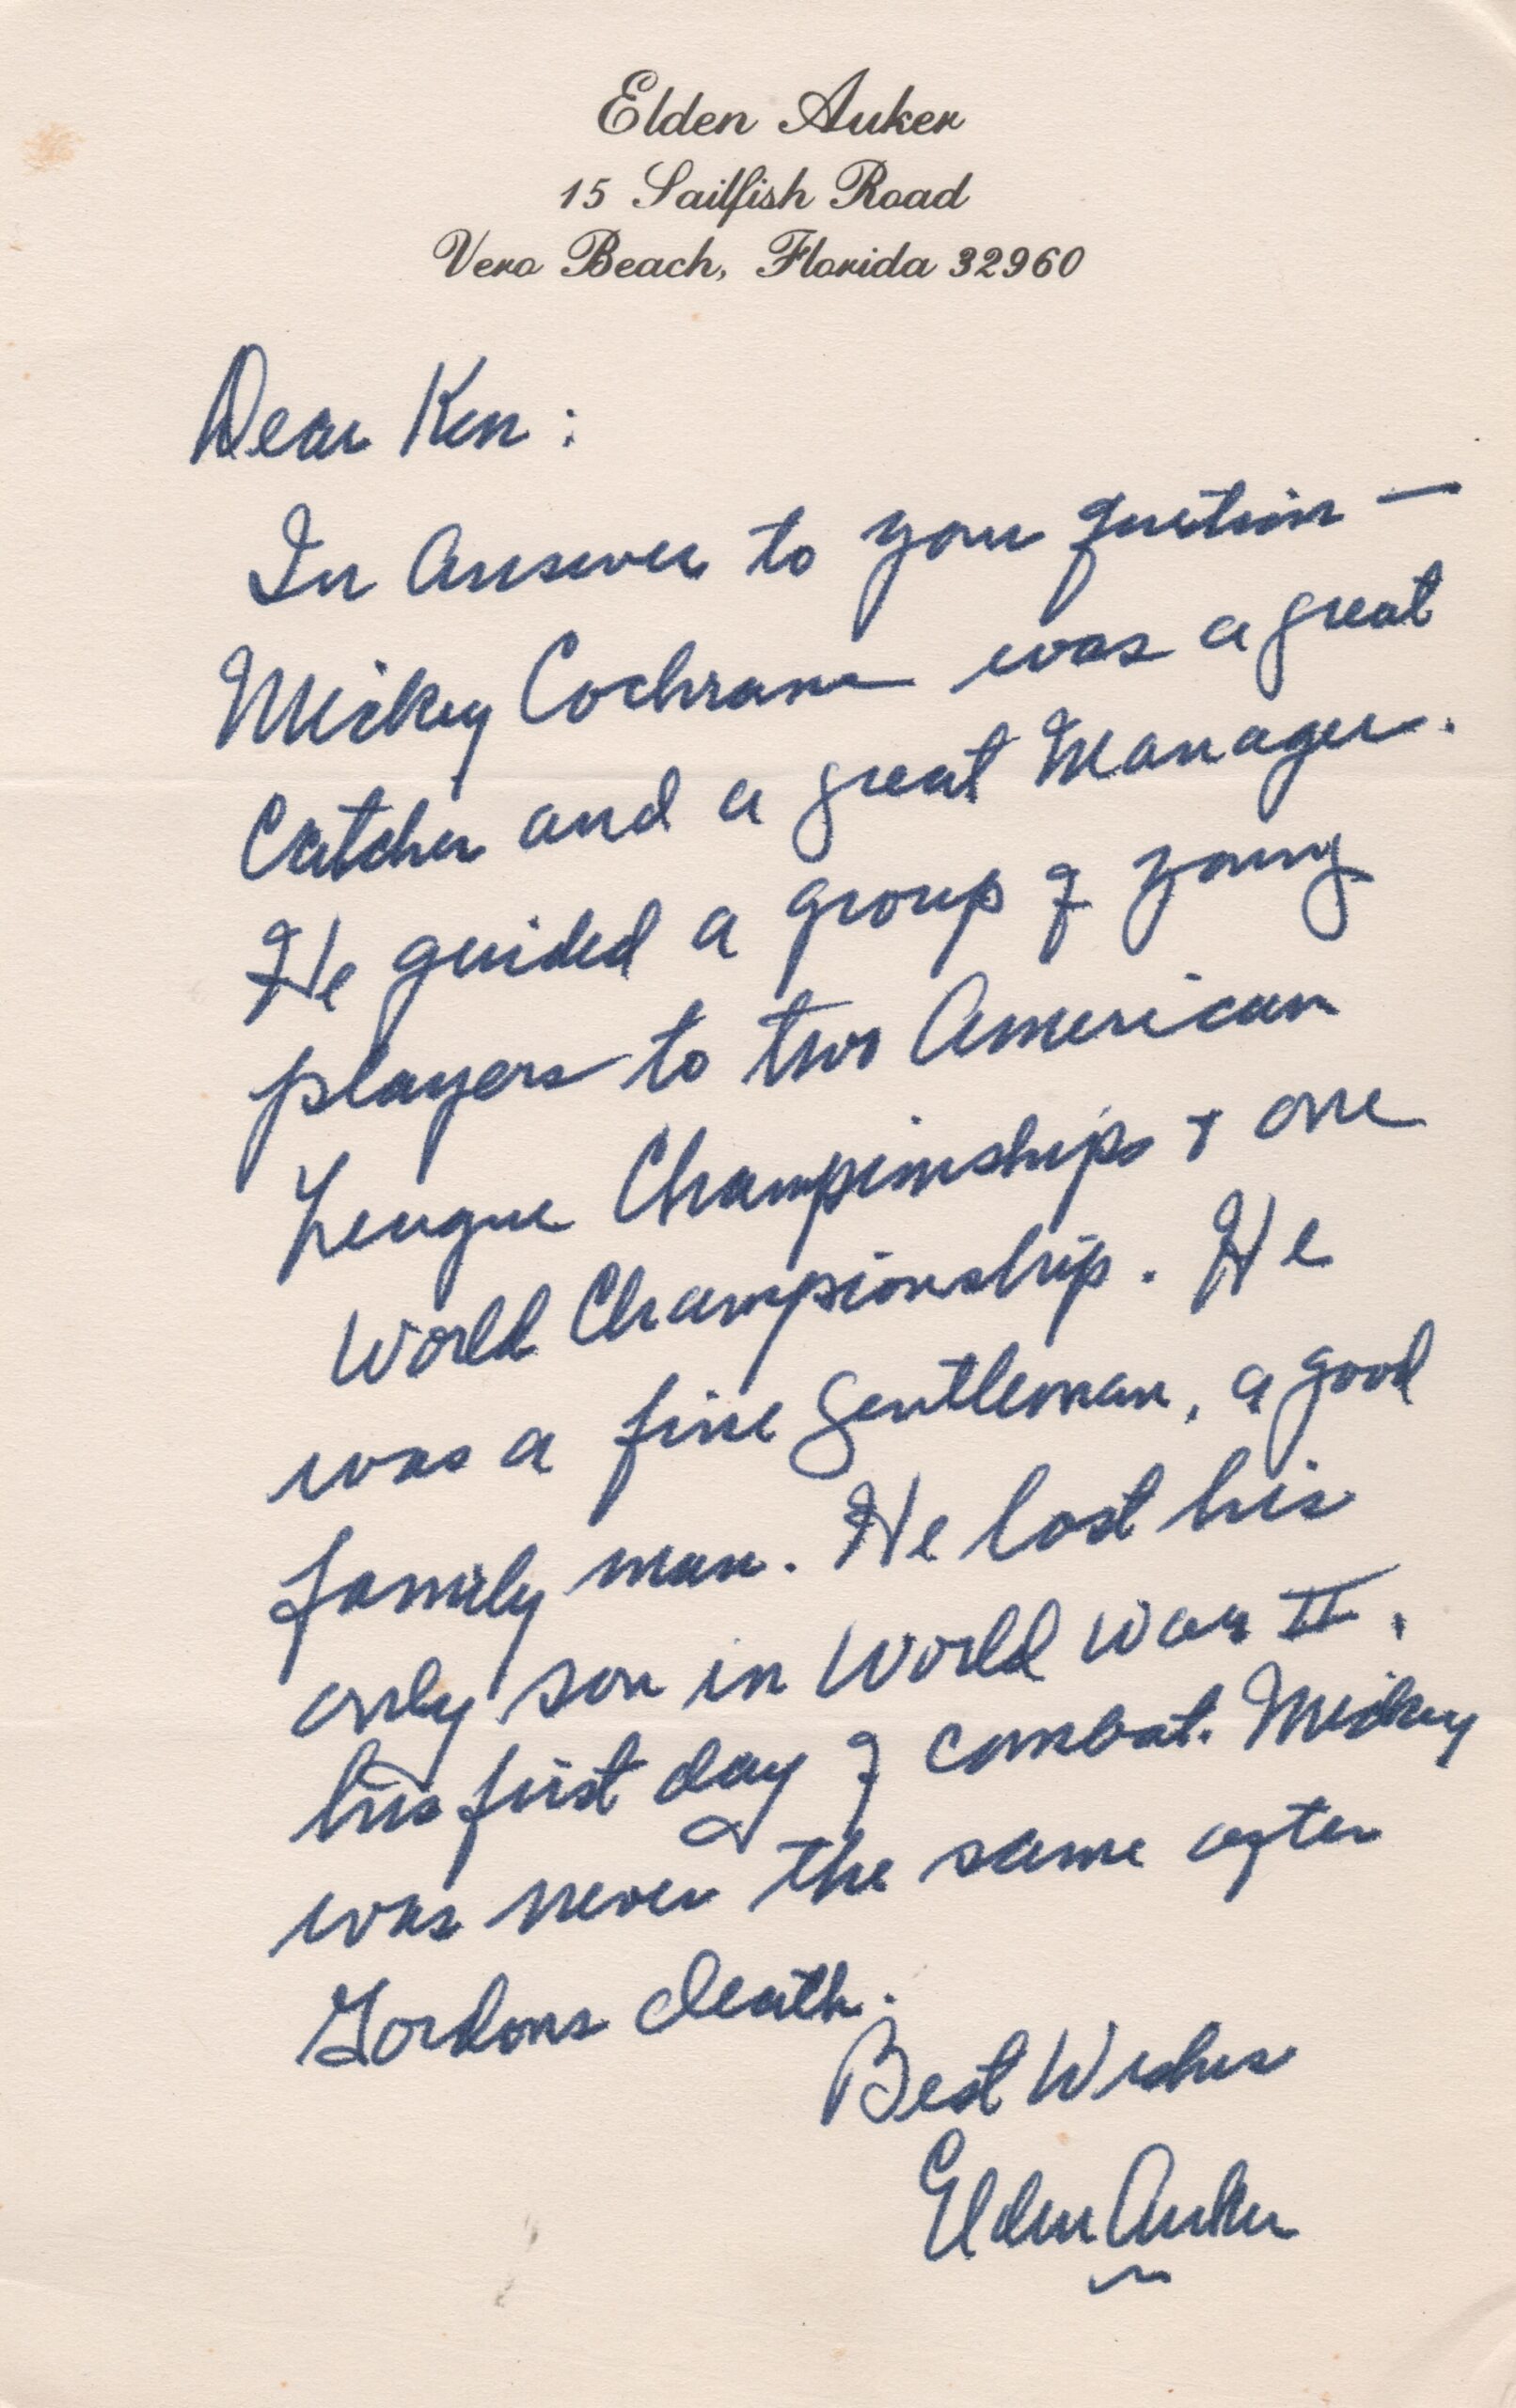 Elden Auker
15 Sailfish Road
Vero Beach, Florida 32960
Dear Ken:
In Answer to your question —
Mickey Cochrane was a great
Catcher and a great Manager.
He guided a group of young
players to two American
League Championships + one
World Championship. He
was a fine gentleman, a good
family man. He lost his
only son in World War II,
his first day of combat. Mickey
was never the same after
Gordons death.
Best Wishes
Elden Auker